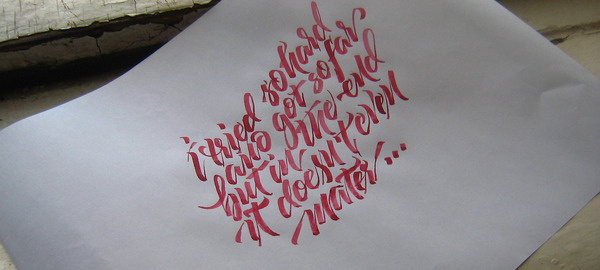 i tried so hard
and got so far
but in the end
it doesn't even
mater...